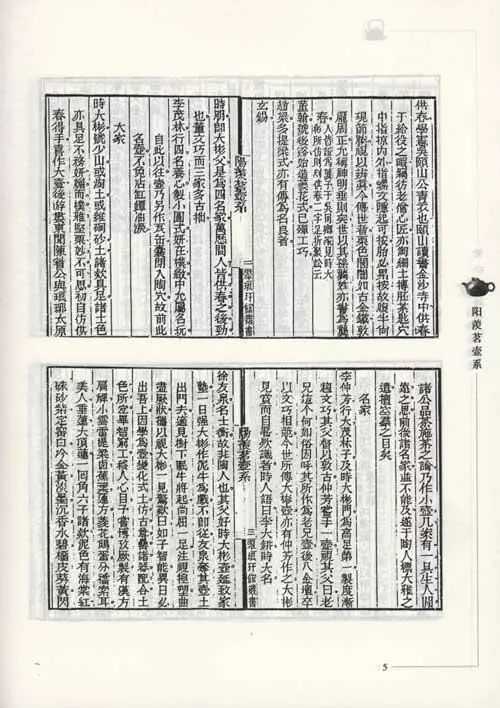 供春學憲吳頤山公青衣也頤山讀書金沙寺中供春
于給役之暇竊仿老僧心匠亦淘細土摶胚茶匙穴
中指掠內外指螺文隱起可按胎必累按故腹半尚
現節腠視以辨真今傳世者栗色闇闇如古金鐵敦
龐周正允稱神明垂則矣世以其孫龔姓亦書為龔
春
人皆證為龔予于吳冏卿家見時大
彬所仿則刻供春二字足折聚訟云
董翰號後谿始造菱花式已殫工巧
趙梁多提梁式亦有傳為名良者
玄錫
陽羨茗壺系
二
翠琅玕館叢書
時朋即大彬父是為四名家萬歷間人皆供春之後勁
也董文巧而三家多古拙
李茂林行四名養心製小圓式妍在樸緻中允屬名玩
自此以往壺乃另作瓦缶囊閉入陶穴故前此
名壺不免沾缸罈油淚
大家
時大彬號少山或淘土或雜砂土諸款具足諸土色
亦具足不務妍媚而樸雅堅栗妙不可思初自仿供
春得手喜作大壺後游婁東聞陳眉公與瑯琊太原
諸公品茶施茶之論乃作小壺几案有一具生人閒
遠之思前後諸名家並不能及遂于陶人標大雅之
遺擅空羣之目矣
名家
李仲芳行大茂林子及時大彬門為高足第一製度漸
趨文巧其父督以敦古仲芳嘗手一壺視其父曰老
兄這個何如俗因呼其所作為老兄壺後入金壇卒
以文巧相競今世所傳大彬壺亦有仲芳作之大彬
見賞而自署款識者時人語曰李大缾時大名
陽羨茗壺系
三
翠琅玕館叢書
徐友泉名士衡故非陶人也其父好時大彬壺延致家
塾一日强大彬作泥牛為戲不卽從友泉奪其壺土
出門去適見樹下眠牛將起尚屈一足注視捏塑曲
盡厥狀攜以視大彬一見驚歎曰如子智能異日必
出吾上因學為壺變化式土仿古尊罍諸器配合土
色所宜畢智窮工移人心目予嘗博攷厥製有漢方
扁觶小雲雷提梁卣蕉葉蓮方菱花鵝蛋分襠索耳
美人垂蓮大頂蓮一回角六子諸款泥色有海棠紅
硃砂紫定窰白冷金黃淡墨沉香水碧榴皮葵黃閃
阳羡茗壶系
5